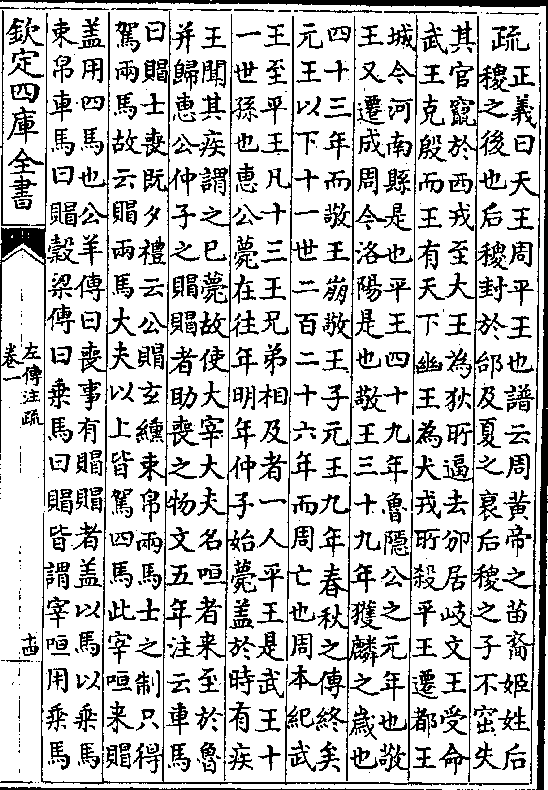 疏正義曰天王周平王也譜云周黄帝之苗裔姬姓后
稷之後也后稷封於邰及夏之衰后稷之子不窋失
其官竄於西戎至大王為狄所逼去邠居岐文王受命
武王克殷而王有天下幽王為犬戎所殺平王遷都王
城今河南縣是也平王四十九年魯隱公之元年也敬
王又遷成周今洛陽是也敬王三十九年獲麟之歲也
四十三年而敬王崩敬王子元王九年春秋之傳終矣
元王以下十一世二百二十六年而周亡也周本紀武
王至平王凡十三王兄弟相及者一人平王是武王十
一世孫也惠公薨在往年明年仲子始薨蓋於時有疾
王聞其疾謂之已薨故使大宰大夫名咺者来至於魯
并歸惠公仲子之賵賵者助喪之物文五年注云車馬
曰賵士喪既夕禮云公賵玄纁束帛兩馬士之制只得
駕兩馬故云賵兩馬大夫以上皆駕四馬此宰咺来賵
蓋用四馬也公羊傳曰喪事有賵賵者蓋以馬以乘馬
束帛車馬曰賵穀梁傳曰乘馬曰賵皆謂宰咺用乘馬
欽定四庫全書
左傳注疏
卷一
十四